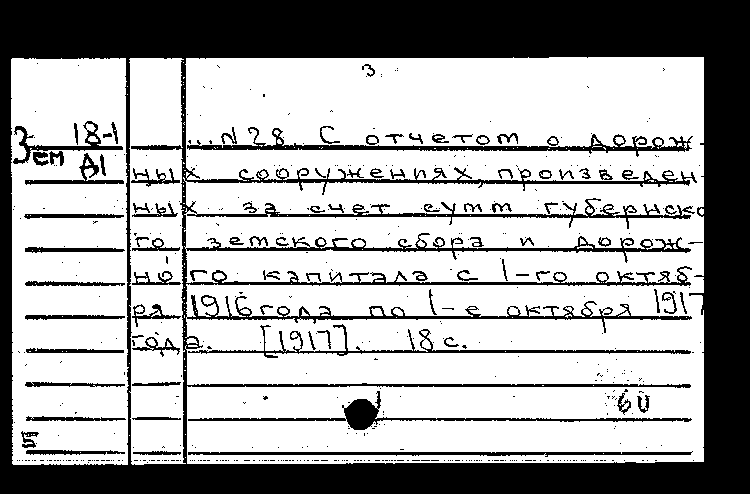 3
Зем 18-1 ...N 28. С отчетом о дорож-
А1 ных сооружениях, произведен-
ных за счет сумм губернско
го земского сбора и дорож-
ного капитала с 1-го октяб-
ря 1916 года по 1-е октября 1917
года. [1917]. 18 с.
60